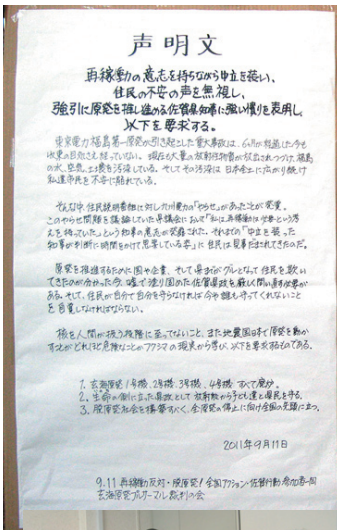 声明文
再稼働の意志を持ちながら中立を装い、
住民の不安の声を無視し、
強引に原発を推し進める佐賀県知事に強い憤りを表明し、
以下を要求する。
東京電力福島第一原発が引き起こした重大事故は、6ヶ月が経過した今も
収束の目処さえ経っていない。現在も大量の放射性物質が放出されつづけ、福島
の水、空気、土壌を汚染している。そしてその汚染は日本全土に広がり続け
私達市民を不安に陥れている。
そんな中、県民説明番組に対した九州電力の「やらせ」があったことが発覚。
このやらせ問題を議論していた県議会において「私は再稼働は必要という考
えを持っていた」という知事の意志が発露された。それまでの「中立を装った
知事が判断に時間をかけて思案している姿」に住民は見事だまされてきたのだ。
原発を推進するために国や企業、そして県までがグルとなって住民を欺い
てきたのが分かった今、嘘で塗り固めた佐賀県政を厳しく問い直す必要が
ある。そして、住民が自分で自分を守らなければ今や誰も守ってくれないこと
を自覚しなければならない。
核を人間が扱う段階に至ってない、また地震国日本で原発を動か
すことがどれほど危険なことかフクシマの現実から学び、以下を要求するものである。
1. 玄海原発1号機、2号機、3号機、4号機 すべて廃炉。
2. 生命の側に立った県政として放射能から子ども達と県民を守る。
3. 脱原発社会を構築すべく、全原発の停止に向け全国の先頭に立つ。
2011年9月11日
9.11 再稼働反対・脱原発!全国アクション・佐賀行動 参加者一同
玄海原発プルサーマル裁判の会